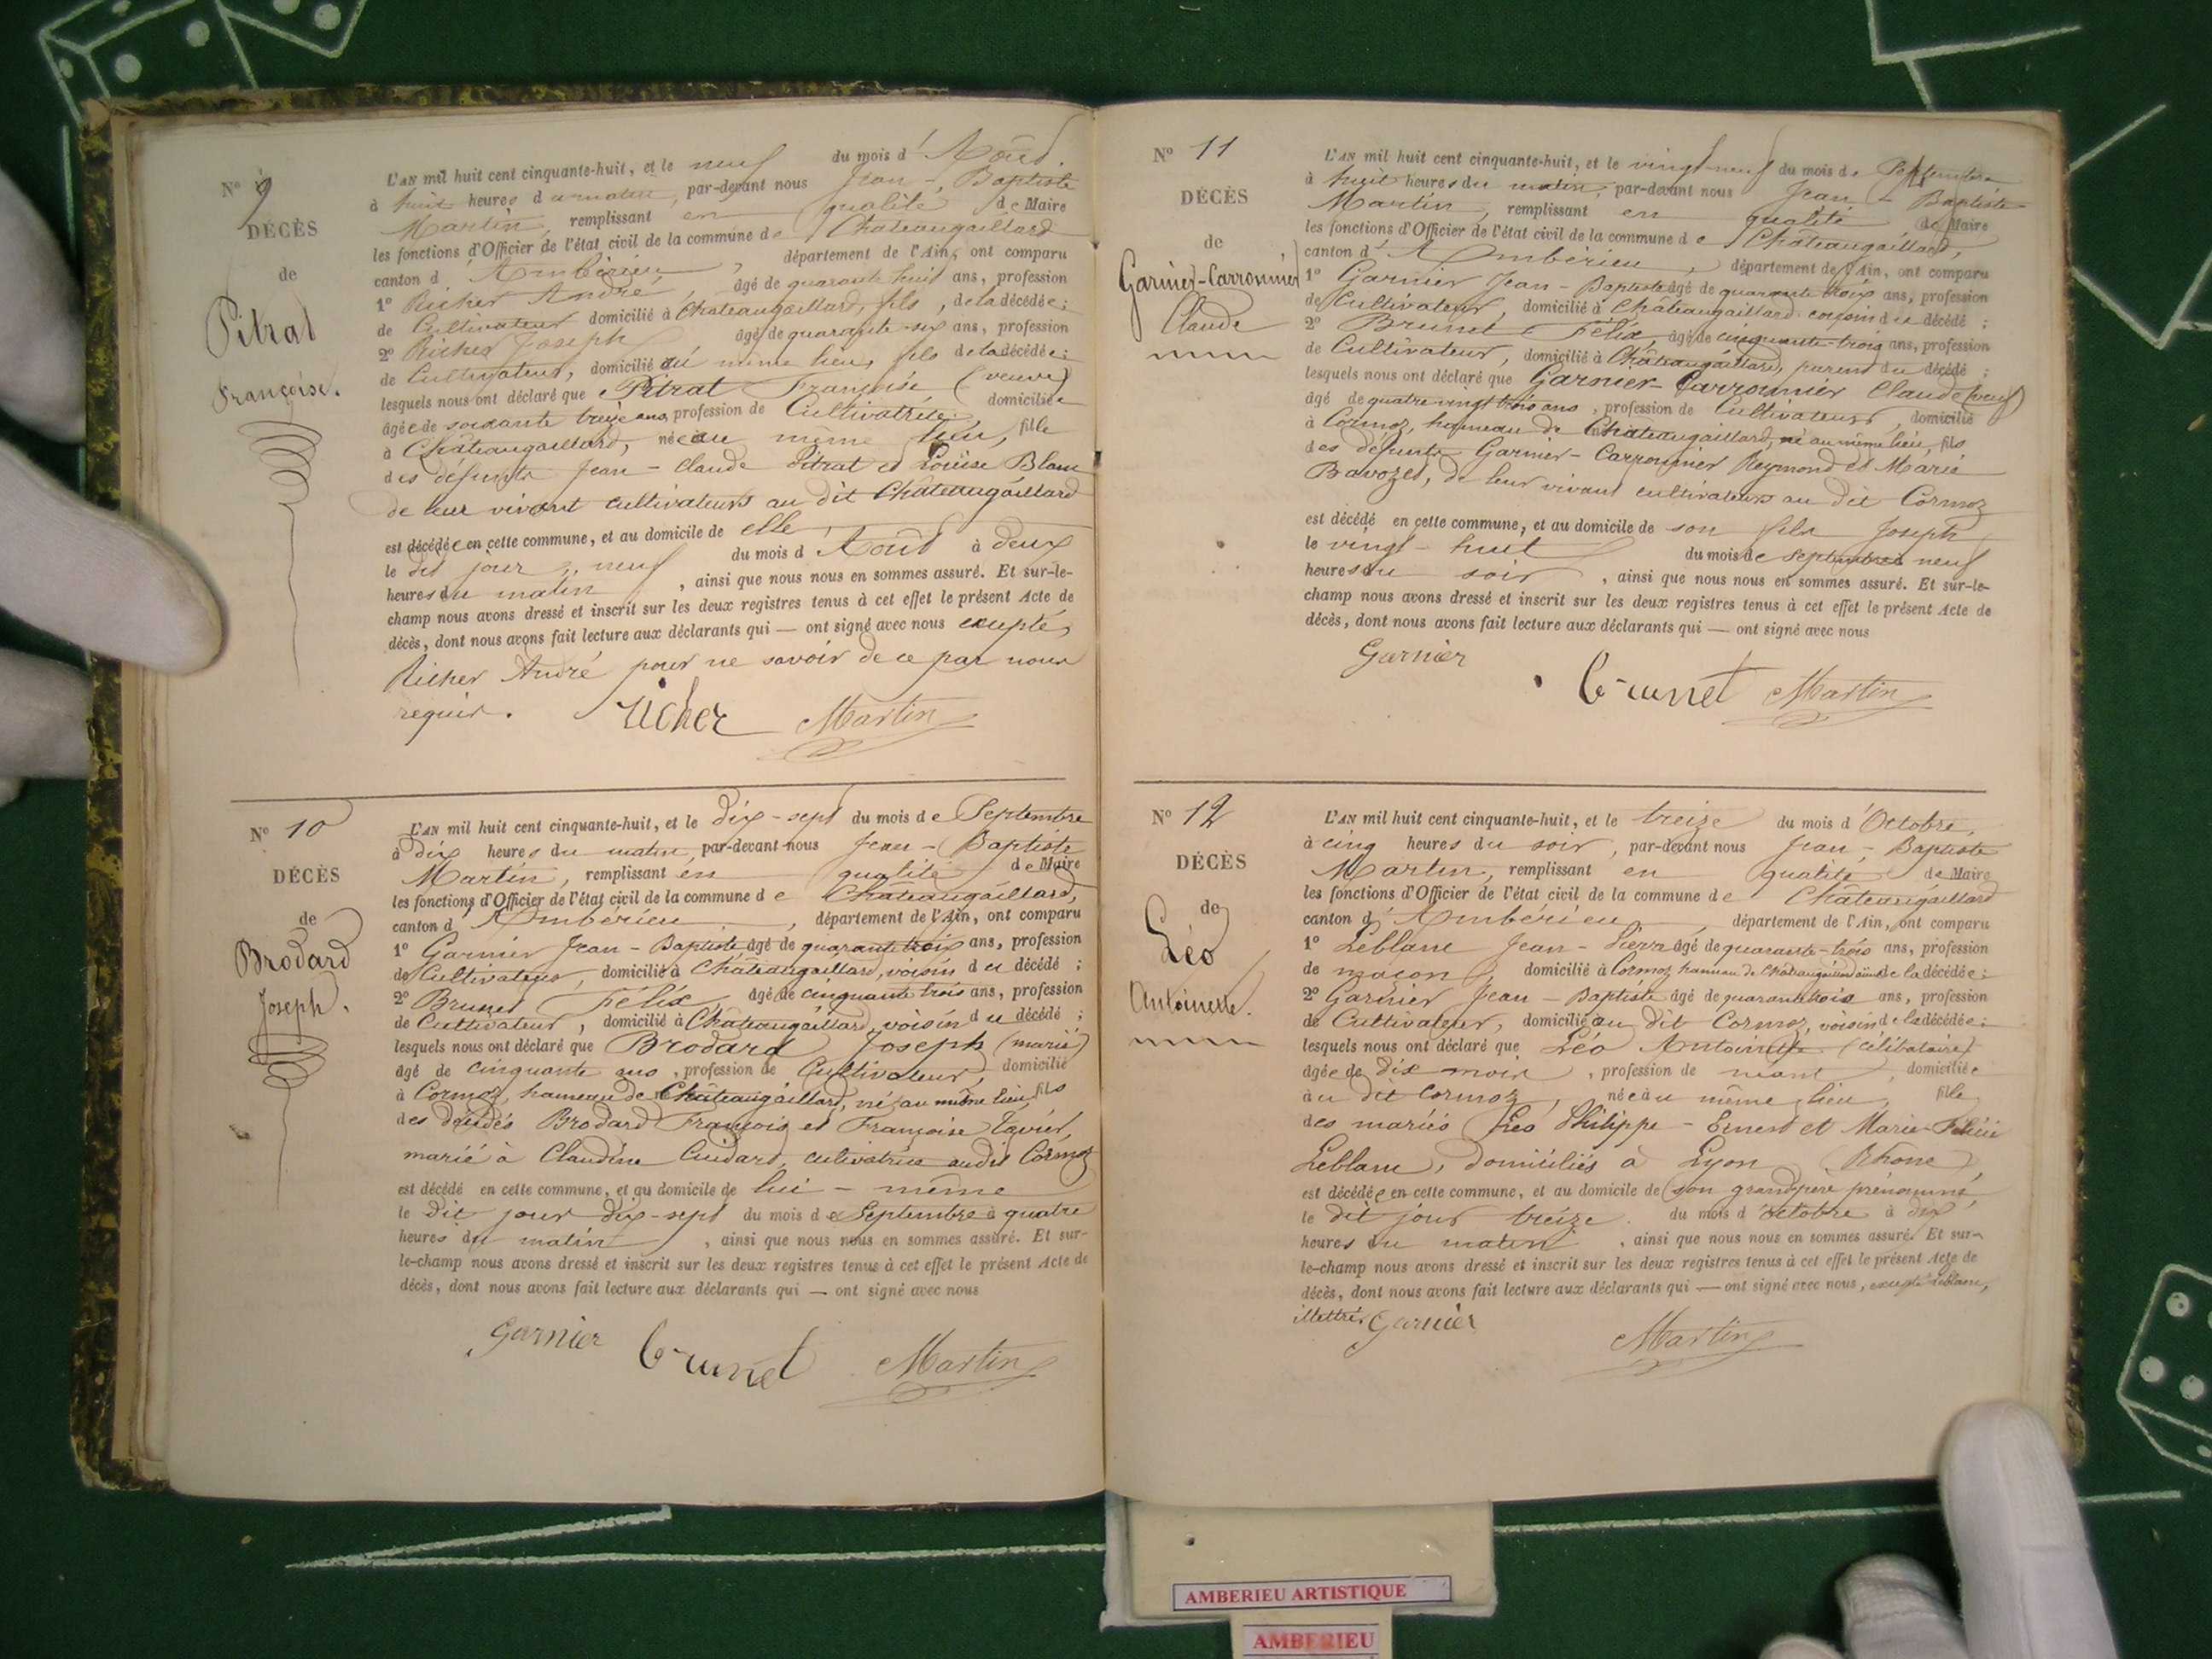 N° 9
DÉCÈS
de
Pitrat
Françoise.
L'AN mil huit cent cinquante-huit, et le neuf du mois d'Août.
à huit heures du matin, par-devant nous Jean-Baptiste
Martin, remplissant en qualité de Maire
les fonctions d'Officier de l'état civil de la commune de Châteaugaillard
canton d'Ambérieu, département de l'Ain, ont comparu
1° Richer André, âgé de quarante huit ans, profession
de Cultivateur domicilié à Châteaugaillard, fils, de la décédée;
2° Richer Joseph âgé de quarante-six ans, profession
de Cultivateur, domicilié au même lieu, fils de la décédée;
lesquels nous ont déclaré que Pitrat Françoise (veuve)
âgée de soixante treize ans, profession de Cultivatrice, domiciliée
à Châteaugaillard, née au même lieu, fille
des défunts Jean-Claude Pitrat et Louise Blanc
de leur vivant cultivateurs au dit Châteaugaillard
est décédée en cette commune, et au domicile de elle
le dit jour neuf du mois d'Août à deux
heures du matin, ainsi que nous nous en sommes assuré. Et sur-le-
champ nous avons dressé et inscrit sur les deux registres tenus à cet effet le présent Acte de
décès, dont nous avons fait lecture aux déclarants qui — ont signé avec nous excepté
Richer André pour ne savoir de ce par nous
requis. Richer Martin
N° 10
DÉCÈS
de
Brodard
Joseph.
L'AN mil huit cent cinquante-huit, et le dix-sept du mois de Septembre
à dix heures du matin, par-devant nous Jean-Baptiste
Martin, remplissant en qualité de Maire
les fonctions d'Officier de l'état civil de la commune de Châteaugaillard,
canton d'Ambérieu, département de l'Ain, ont comparu
1° Garnier Jean-Baptiste âgé de quarante trois ans, profession
de Cultivateur, domicilié à Châteaugaillard, voisin du décédé;
2° Brunet Félix, âgé de cinquante trois ans, profession
de Cultivateur, domicilié à Châteaugaillard, voisin du décédé;
lesquels nous ont déclaré que Brodard Joseph (marié)
âgé de cinquante ans, profession de Cultivateur, domicilié
à Cormoz, hameau de Châteaugaillard, né au même lieu, fils
des décédés Brodard François et Françoise
marié à Claudine cultivatrice au dit Cormoz
est décédé en cette commune, et au domicile de lui-même
le dit jour dix-sept du mois de Septembre à quatre
heures du matin, ainsi que nous nous en sommes assuré. Et sur-
le-champ nous avons dressé et inscrit sur les deux registres tenus à cet effet le présent Acte de
décès, dont nous avons fait lecture aux déclarants qui — ont signé avec nous
Garnier Brunet Martin
N° 11
DÉCÈS
de
Garnier-Carronnier
Claude
L'AN mil huit cent cinquante-huit, et le vingt-neuf du mois de Septembre
à huit heures du matin, par-devant nous Jean-Baptiste
Martin, remplissant en qualité de Maire
les fonctions d'Officier de l'état civil de la commune de Châteaugaillard,
canton d'Ambérieu, département de l'Ain, ont comparu
1° Garnier Jean-Baptiste âgé de quarante trois ans, profession
de Cultivateur, domicilié à Châteaugaillard du décédé;
2° Brunet Félix, âgé de cinquante-trois ans, profession
de Cultivateur, domicilié à Châteaugaillard, parent du décédé;
lesquels nous ont déclaré que Garnier-Carronnier Claude (veuf)
âgé de quatre vingt trois ans, profession de Cultivateur, domicilié
à Cormoz, hameau de Châteaugaillard, né au même lieu, fils
des défunts Garnier-Carronnier Reymond et Marie
Bavozet, de leur vivant cultivateurs au dit Cormoz
est décédé en cette commune, et au domicile de son fils Joseph
le vingt-huit du mois de Septembre neuf
heures du soir, ainsi que nous nous en sommes assuré. Et sur-le-
champ nous avons dressé et inscrit sur les deux registres tenus à cet effet le présent Acte de
décès, dont nous avons fait lecture aux déclarants qui — ont signé avec nous
Garnier Brunet Martin
N° 12
DÉCÈS
de
Léo
Antoinette.
L'AN mil huit cent cinquante-huit, et le treize du mois d'Octobre,
à cinq heures du soir, par-devant nous Jean-Baptiste
Martin, remplissant en qualité de Maire
les fonctions d'Officier de l'état civil de la commune de Châteaugaillard
canton d'Ambérieu, département de l'Ain, ont comparu
1° Leblanc Jean-Pierre âgé de quarante-trois ans, profession
de maçon, domicilié à Cormoz hameau de Châteaugaillard de la décédée;
2° Garnier Jean-Baptiste âgé de quarante trois ans, profession
de Cultivateur, domicilié au dit Cormoz, voisin de la décédée;
lesquels nous ont déclaré que Léo Antoinette (célibataire)
âgée de dix mois, profession de néant, domiciliée
au dit Cormoz, née au même lieu, fille
des mariés Léo Philippe-Ernest et Marie Félicie
Leblanc, domiciliés à Lyon (Rhône),
est décédée en cette commune, et au domicile de son grandpère prénommé,
le dit jour treize du mois d'Octobre à dix
heures du matin, ainsi que nous nous en sommes assuré. Et sur-
le-champ nous avons dressé et inscrit sur les deux registres tenus à cet effet le présent Acte de
décès, dont nous avons fait lecture aux déclarants qui — ont signé avec nous, excepté Leblanc,
illettré, Garnier Martin
AMBERIEU ARTISTIQUE
AMBERIEU